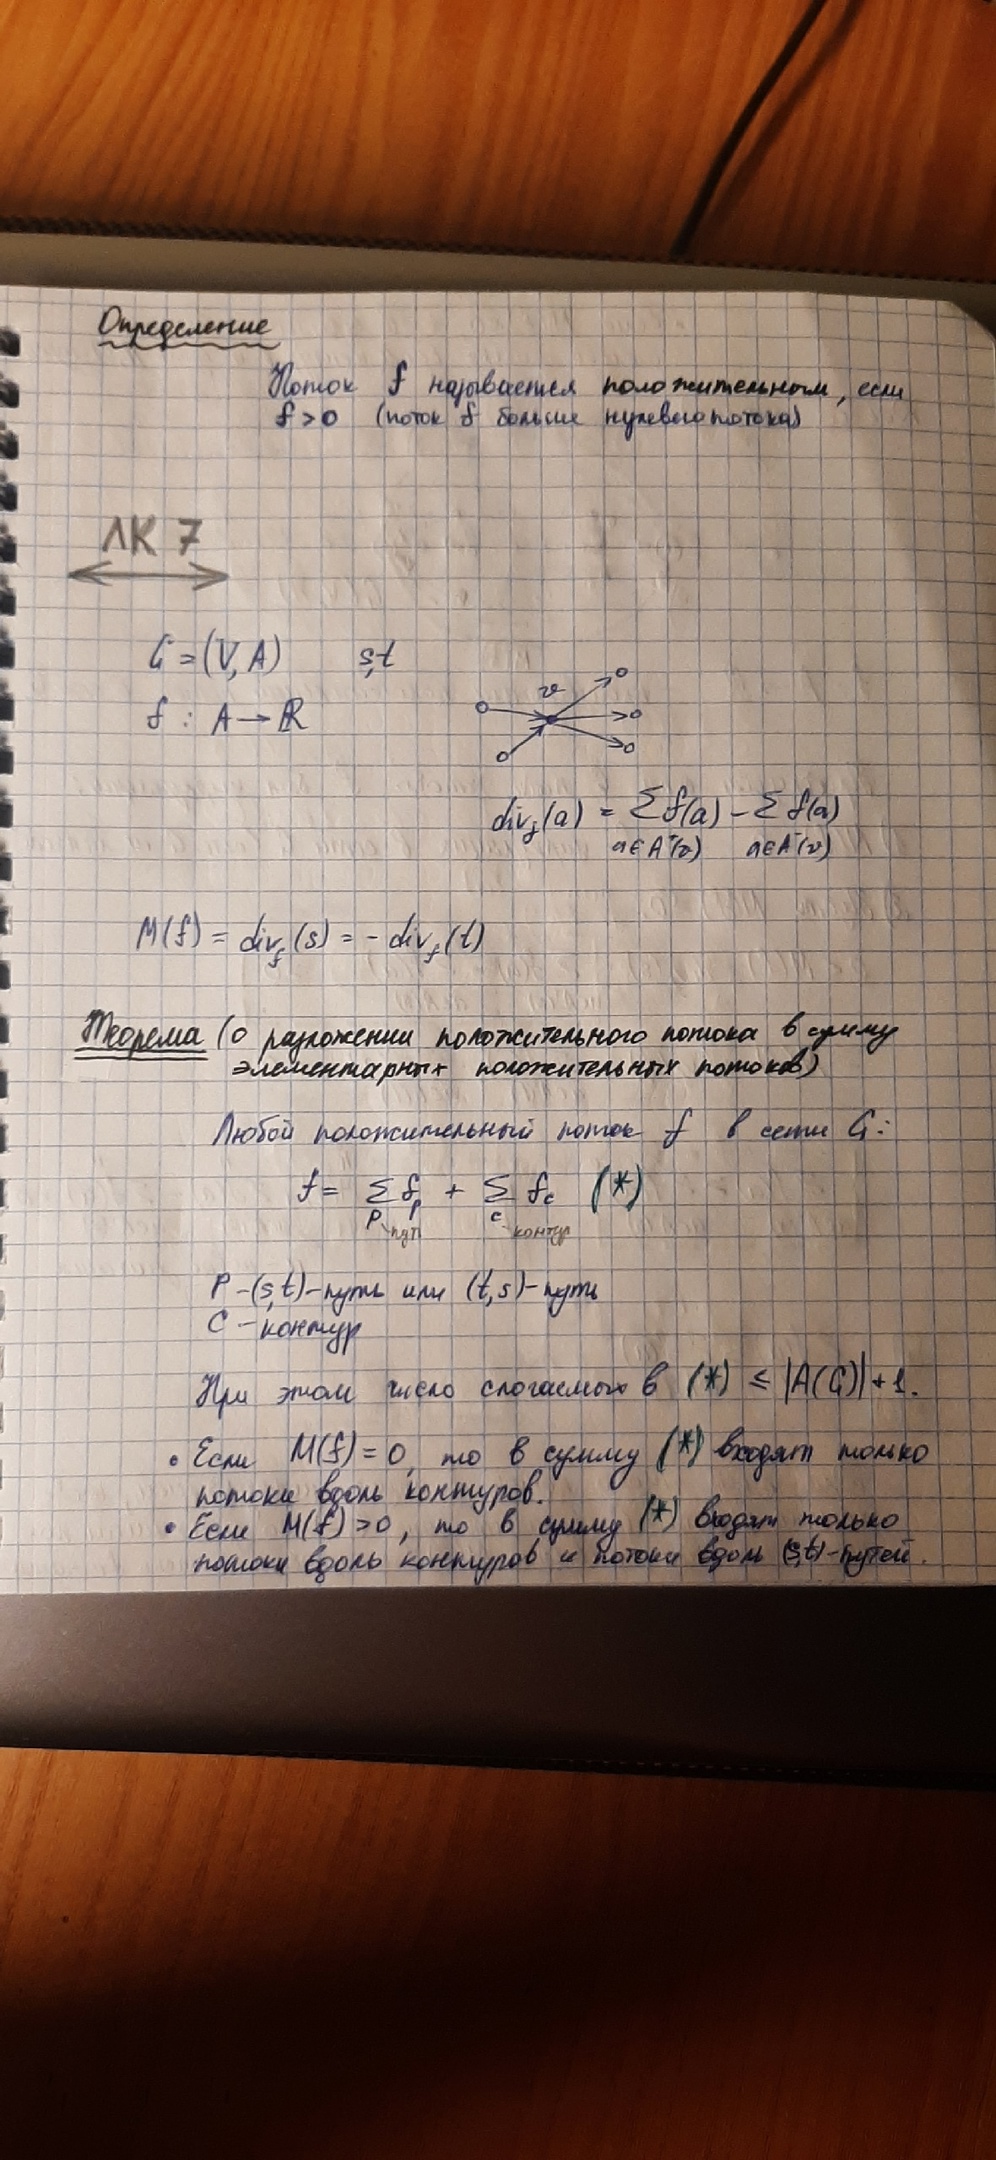 Определение
Поток f называется положительным, если
f > 0 (поток f больше нулевого потока)
ЛК 7
G = (V, A) s,t
f : A → R
v
div_f(a) = Σ f(a) - Σ f(a)
a∈A⁺(v) a∈A⁻(v)
M(f) = div_f(s) = - div_f(t)
Теорема (о разложении положительного потока в сумму
элементарных положительных потоков)
Любой положительный поток f в сети G:
f = Σ f_p + Σ f_c (*)
P - путь C - контур
P - (s,t)-путь или (t,s)-путь
C - контур
При этом число слагаемых в (*) ≤ |A(G)| + 1.
• Если M(f) = 0, то в сумму (*) входят только
потоки вдоль контуров.
• Если M(f) > 0, то в сумму (*) входят только
потоки вдоль контуров и потоки вдоль (s,t)-путей.